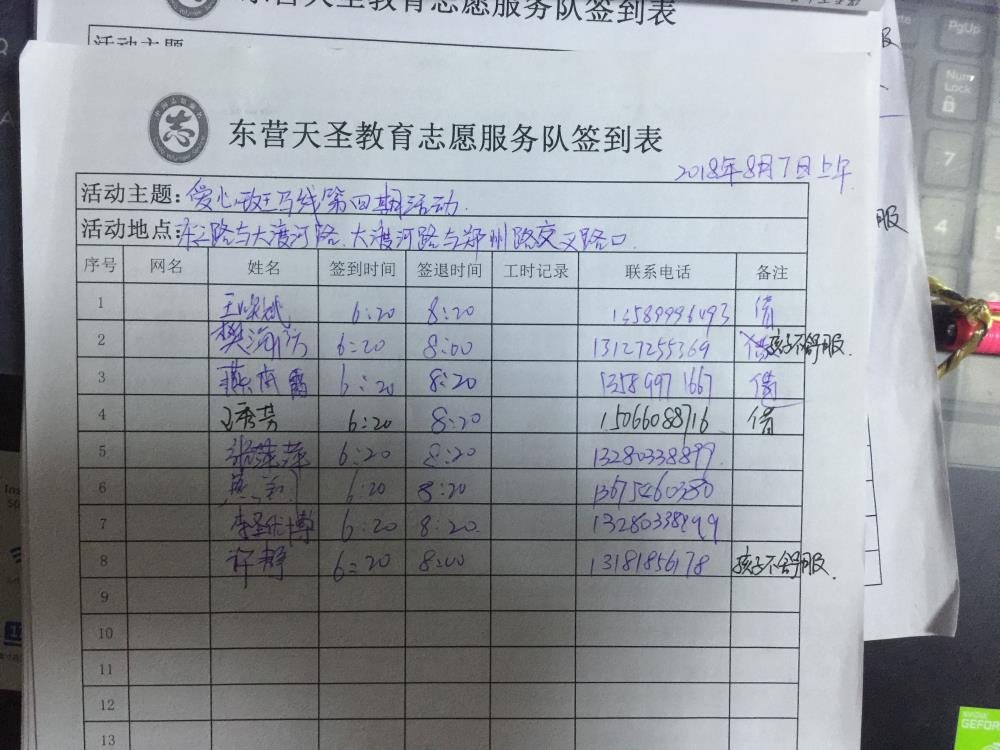 东营天圣教育志愿服务队签到表
活动主题
东营天圣教育志愿服务队签到表
2018年8月7日上午
活动主题：爱心斑马线第四期活动.
活动地点：东二路与大渡河路、大渡河路与郑州路交叉路口.
序号 网名 姓名 签到时间 签退时间 工时记录 联系电话 备注
1 6:20 8:20 13589996493 借
2 樊 6:20 8:00 13127255369 孩子不舒服.
3 燕 霞 6:20 8:20 13589971667 借
4 王秀芳 6:20 8:20 15066088716 借
5 张萍萍 6:20 8:20 13280338899
6 6:20 8:20 13675460380
7 李圣优博 6:20 8:20. 13280338899
8 许静 6:20 8:00 13181856178 孩子不舒服.
9
10
11
12
13
服
PgUp
Num
Lock
7
4
1
NVIDIA
GEFOR